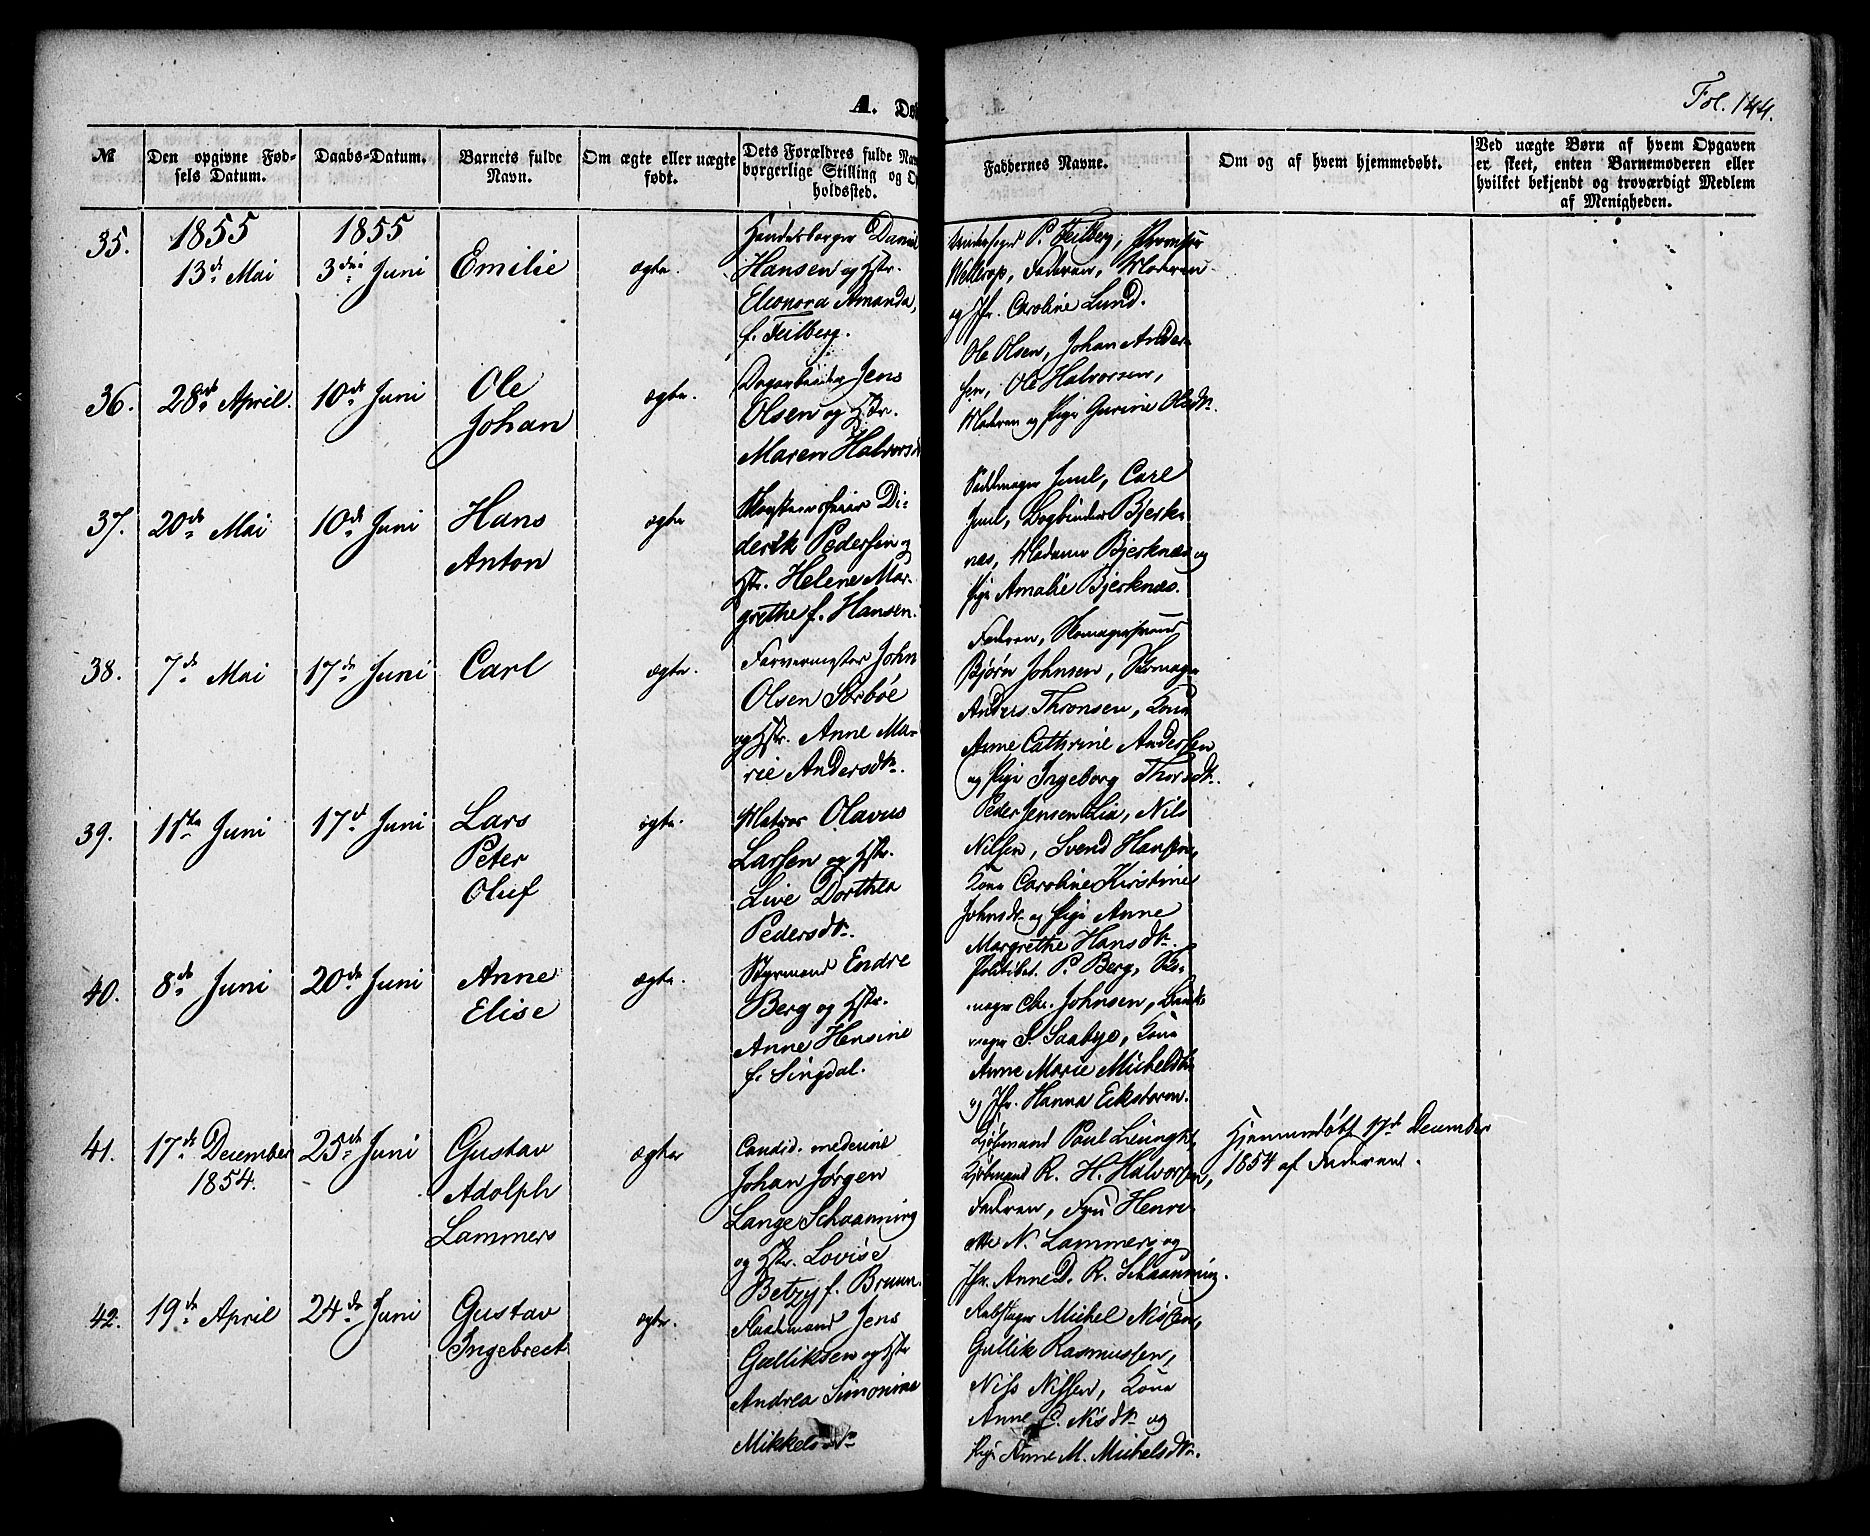 A. Dø
Fol. 144.
№
Den opgivne Fød-
sels Datum.
Daabs-Datum.
Barnets fulde
Navn.
Om ægte eller uægte
født.
Dets Forældres fulde Nav
borgerlige Stilling og O
holdssted.
Faddernes Navne.
Om og af hvem hjemmedøbt.
Ved uægte Børn af hvem Opgaven
er skeet, enten Barnemoderen eller
hvilket bekjendt og troværdigt Medlem
af Menigheden.
35.
1855
13de Mai
1855
3die Juni
Emilie
ægte.
Handelsborger Daniel
Hansen og Hstr.
Eleonora Amanda,
f. Feilberg.
P. Feilberg,
Welterop, Faderen, Moderen
og Jfr. Caroline Lund.
36.
28de April.
10de Juni
Ole
Johan
ægte.
Dagarbeider Jens
Olsen og Hstr.
Maren Halvorsd
Ole Olsen, Johan Ander-
sen, Ole Halvorsen,
Moderen og Pige Gurine Olsdtr.
37.
20de Mai
10de Juni
Hans
Anton
ægte
Skorsteensfeier Di-
derik Pedersen og
Hstr. Helene Mar-
grethe f. Hansen.
Sadelmager Juul, Carl
Juul, Bogbinder Bjerk-
næs, Madame Bjerknæs og
Pige Amalie Bjerknæs.
38.
7de Mai
17de Juni
Carl
ægte.
Farvermester John
Olsen Sørbøe
og Hstr. Anne Ma-
rie Andersdtr.
Faderen, Skomagersvend
Bjørn Johnsen, Skomager
Anders Thronsen, Kone
Anne Cathrine Andersen
og Pige Ingeborg Thorsdtr.
39.
11te Juni
17de Juni
Lars
Peter
Oluf
ægte.
Matros Olavus
Larsen og Hstr.
Live Dorthea
Pedersdtr.
Peder Jensen Lia, Nils
Nilsen, Svend Hansen,
Kone Caroline Kirstine
Johnsdtr og Pige Anne
Margrethe Hansdtr.
40.
8de Juni
20de Juni
Anne
Elise
ægte.
Styrmand Endre
Berg og Hstr.
Anne Hensine
f. Singdal.
Politibet. P. Berg, Sko-
mager Chr. Johnsen,
S. Saabye, Kone
Anne Marie Michelsdtr
og Jfr. Hanna Eckstorm.
41.
17de December
1854.
25de Juni
Gustav
Adolph
Lammers
ægte
Candid. medicine
Johan Jørgen
Lange Schaanning
og Hstr. Lovise
Betzy f. Bruun.
Kjøbmand Paul
Kjøbmand R. H. Halvorsen,
Faderen, Fru Henri-
ette N. Lammers og
Jfr. Anne D. R. Schaanning.
Hjemmedøbt 17de December
1854 af Faderen.
42.
19de April
24de Juni
Gustav
Ingebreet
ægte.
Jens
Gulliksen og Hstr
Andrea Simonine
Mikkelsdtr
Michel Nilsen,
Gullik Rasmussen,
Nils Nilsen, Kone
Anne C. Nilsdtr og
Pige Anne M. Michelsdtr.